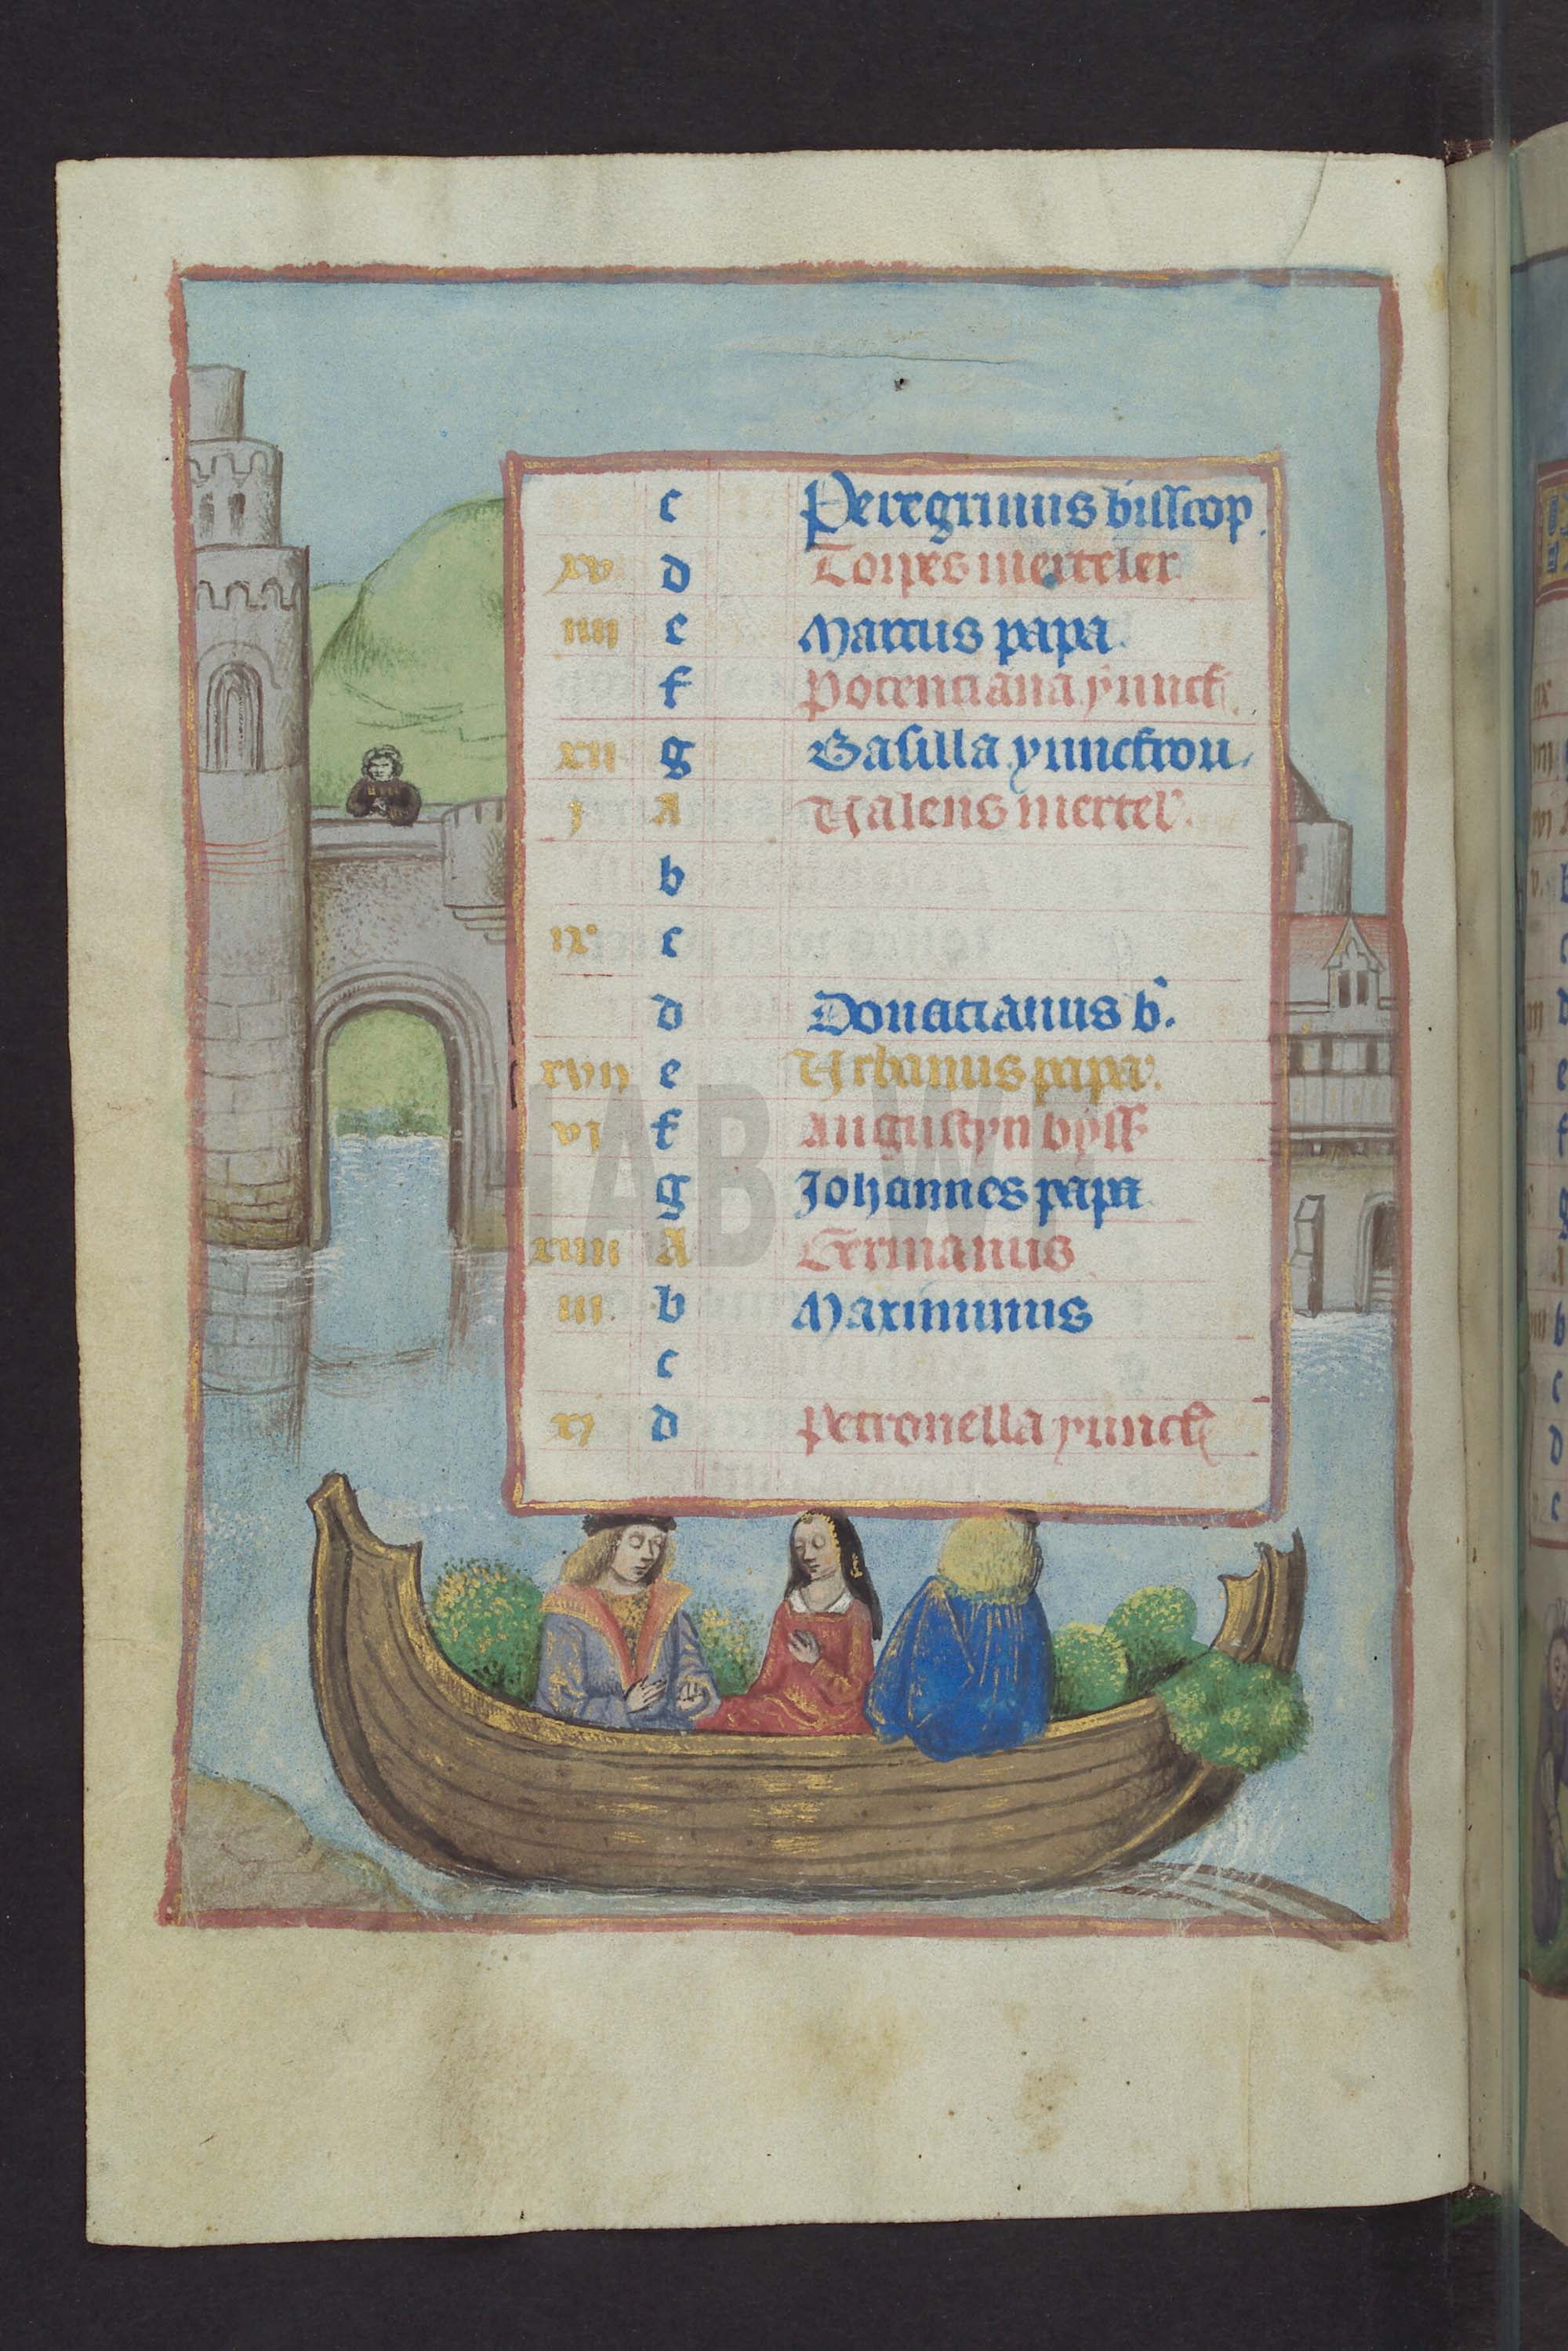 c Peregrinus bisscop.
xv d Torpes merteler
iiii e Marcus papa.
f Potenciana yunck.
xii g Basilla yunckvrou.
j A Valens mertel'.
b
ix c
d Donacianus b.
xvij e Urbanus papa.
vj f Augustyn byss
g Johannes papa
xiiii A Germanus
iii. b Maximinus
c
xj d Petronella yunck
HAB-WF